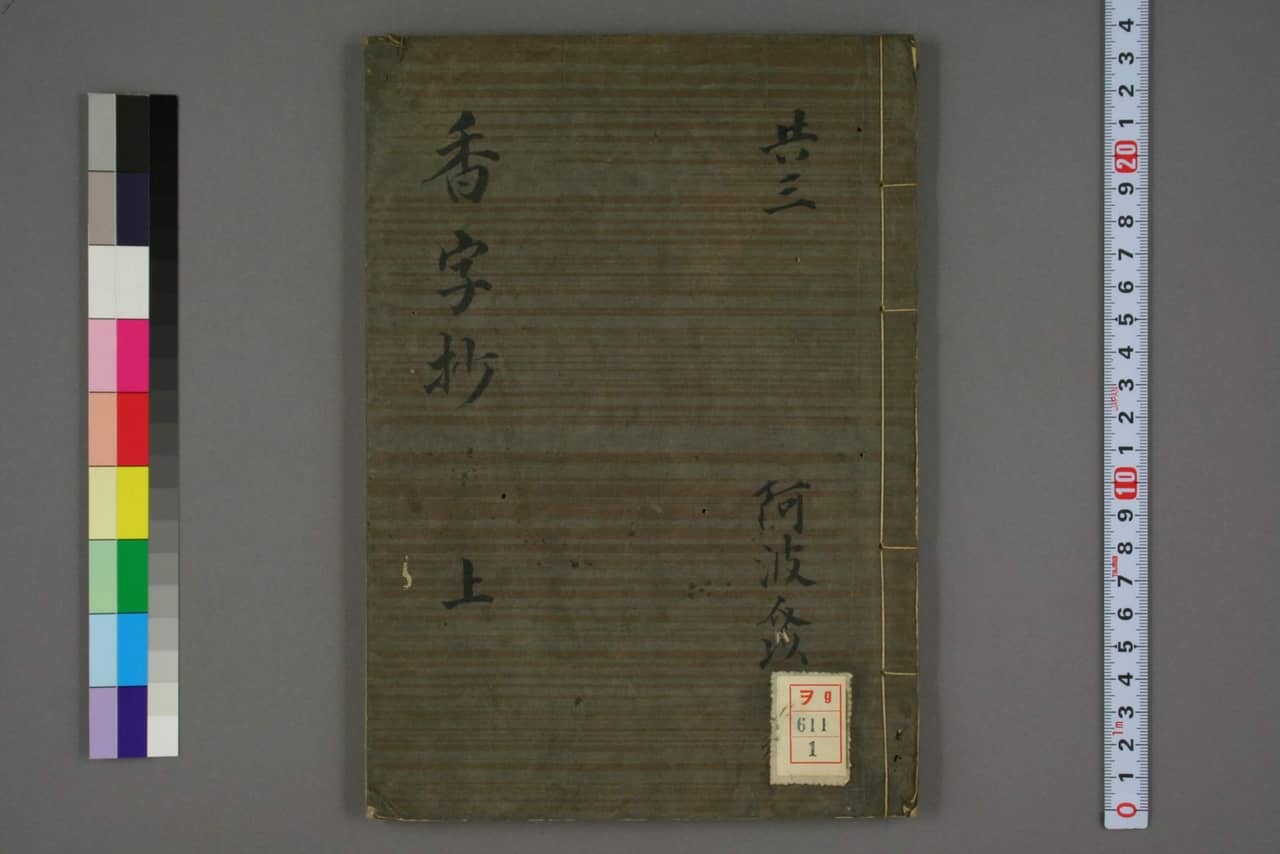 共三
阿波
香字抄 上
ヲ g
611
1
0 1 2 3 4 5 6 7 8 9 10 1 2 3 4 5 6 7 8 9 20 1 2 3 4
1m
JAPAN